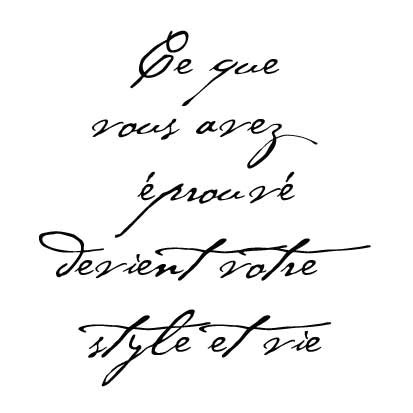 Ce que
vous avez
éprouvé
devient votre
style et vie